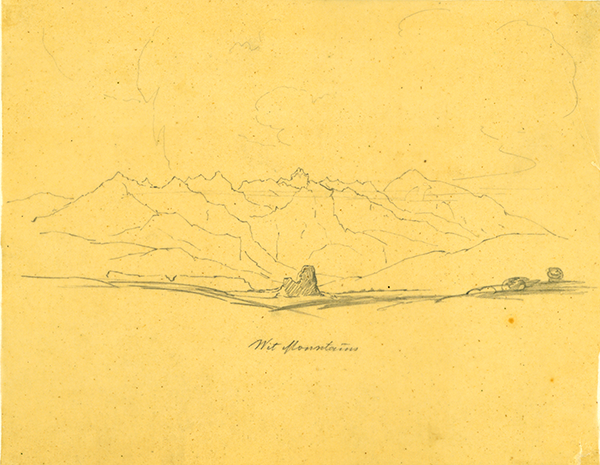 Wet Mountains